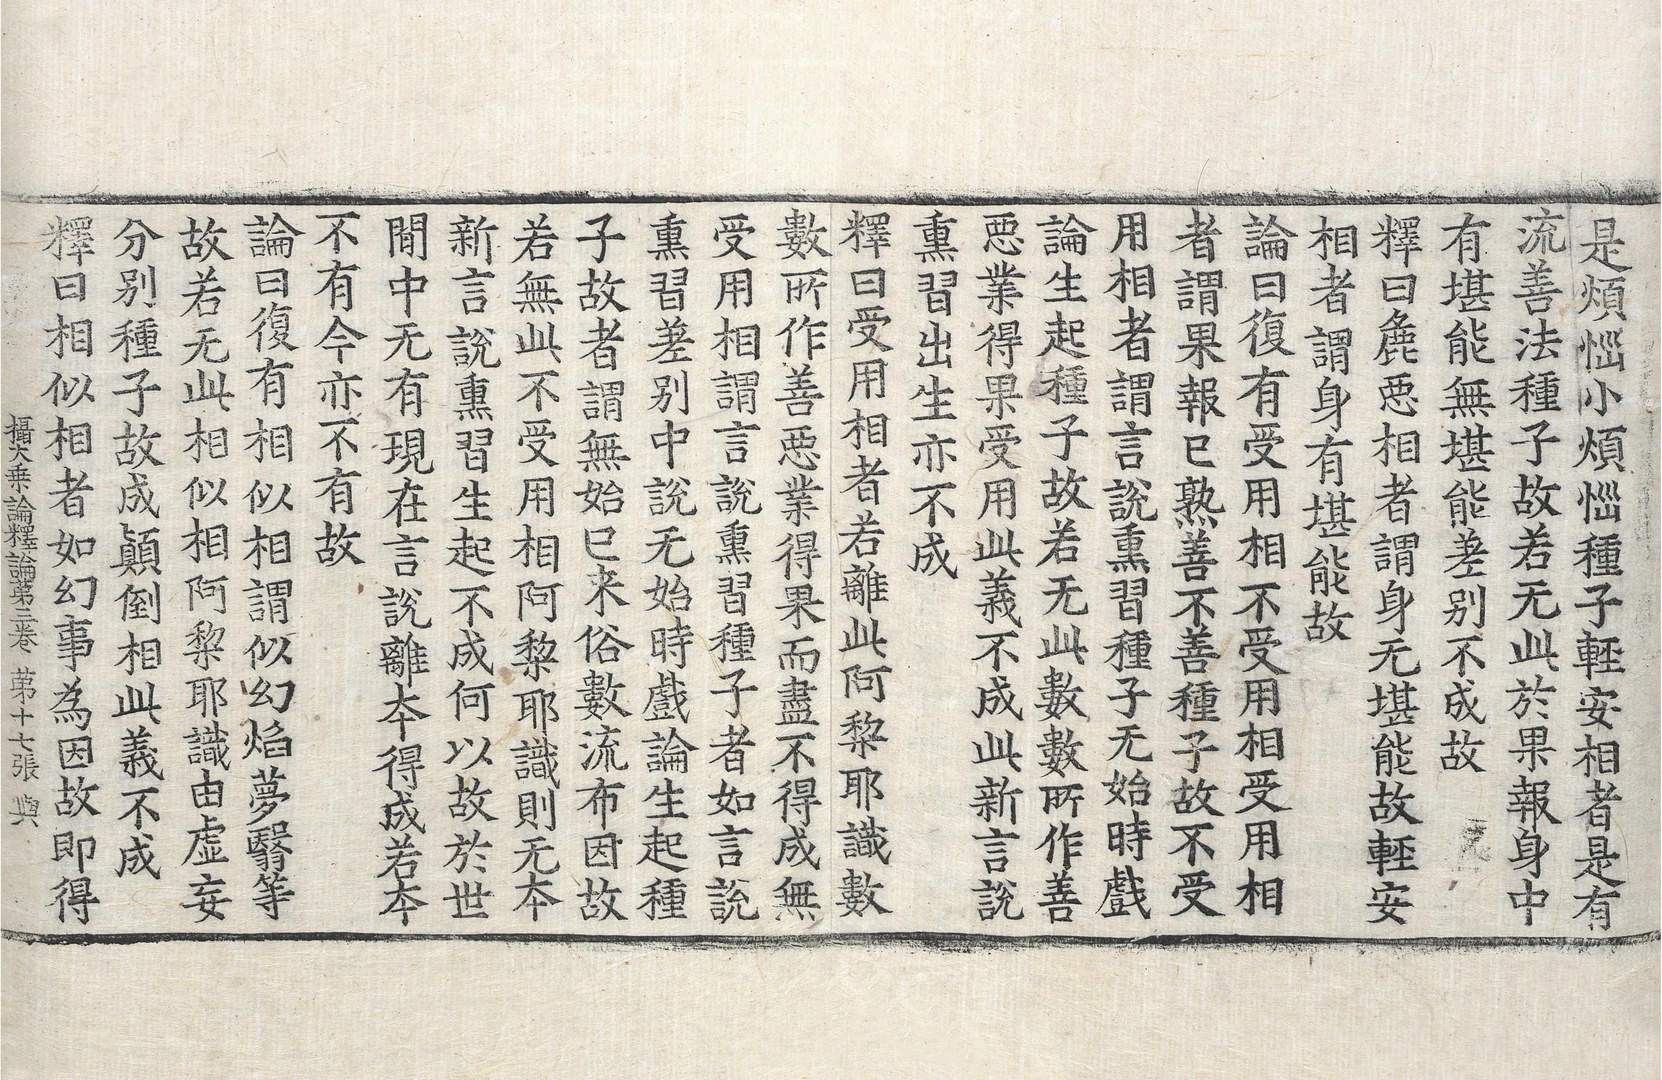 是煩惱小煩惱種子輕安相者是有
流善法種子故若无此於果報身中
有堪能無堪能差别不成故
釋曰麁惡相者謂身无堪能故輕安
相者謂身有堪能故
論曰復有受用相不受用相受用相
者謂果報已熟善不善種子故不受
用相者謂言說熏習種子无始時戲
論生起種子故若无此數數所作善
惡業得果受用此義不成此新言說
熏習出生亦不成
釋曰受用相者若離此阿黎耶識數
數所作善惡業得果而盡不得成無
受用相謂言說熏習種子者如言說
熏習差别中說无始時戲論生起種
子故者謂無始已来俗數流布因故
若無此不受用相阿黎耶識則无夲
新言說熏習生起不成何以故於世
間中无有現在言說離夲得成若夲
不有今亦不有故
論曰復有相似相謂似幻焰夢翳等
故若无此相似相阿黎耶識由虛妄
分別種子故成顛倒相此義不成
釋曰相似相者如幻事為因故即得
攝大乗論釋論第三卷 第十七張 與